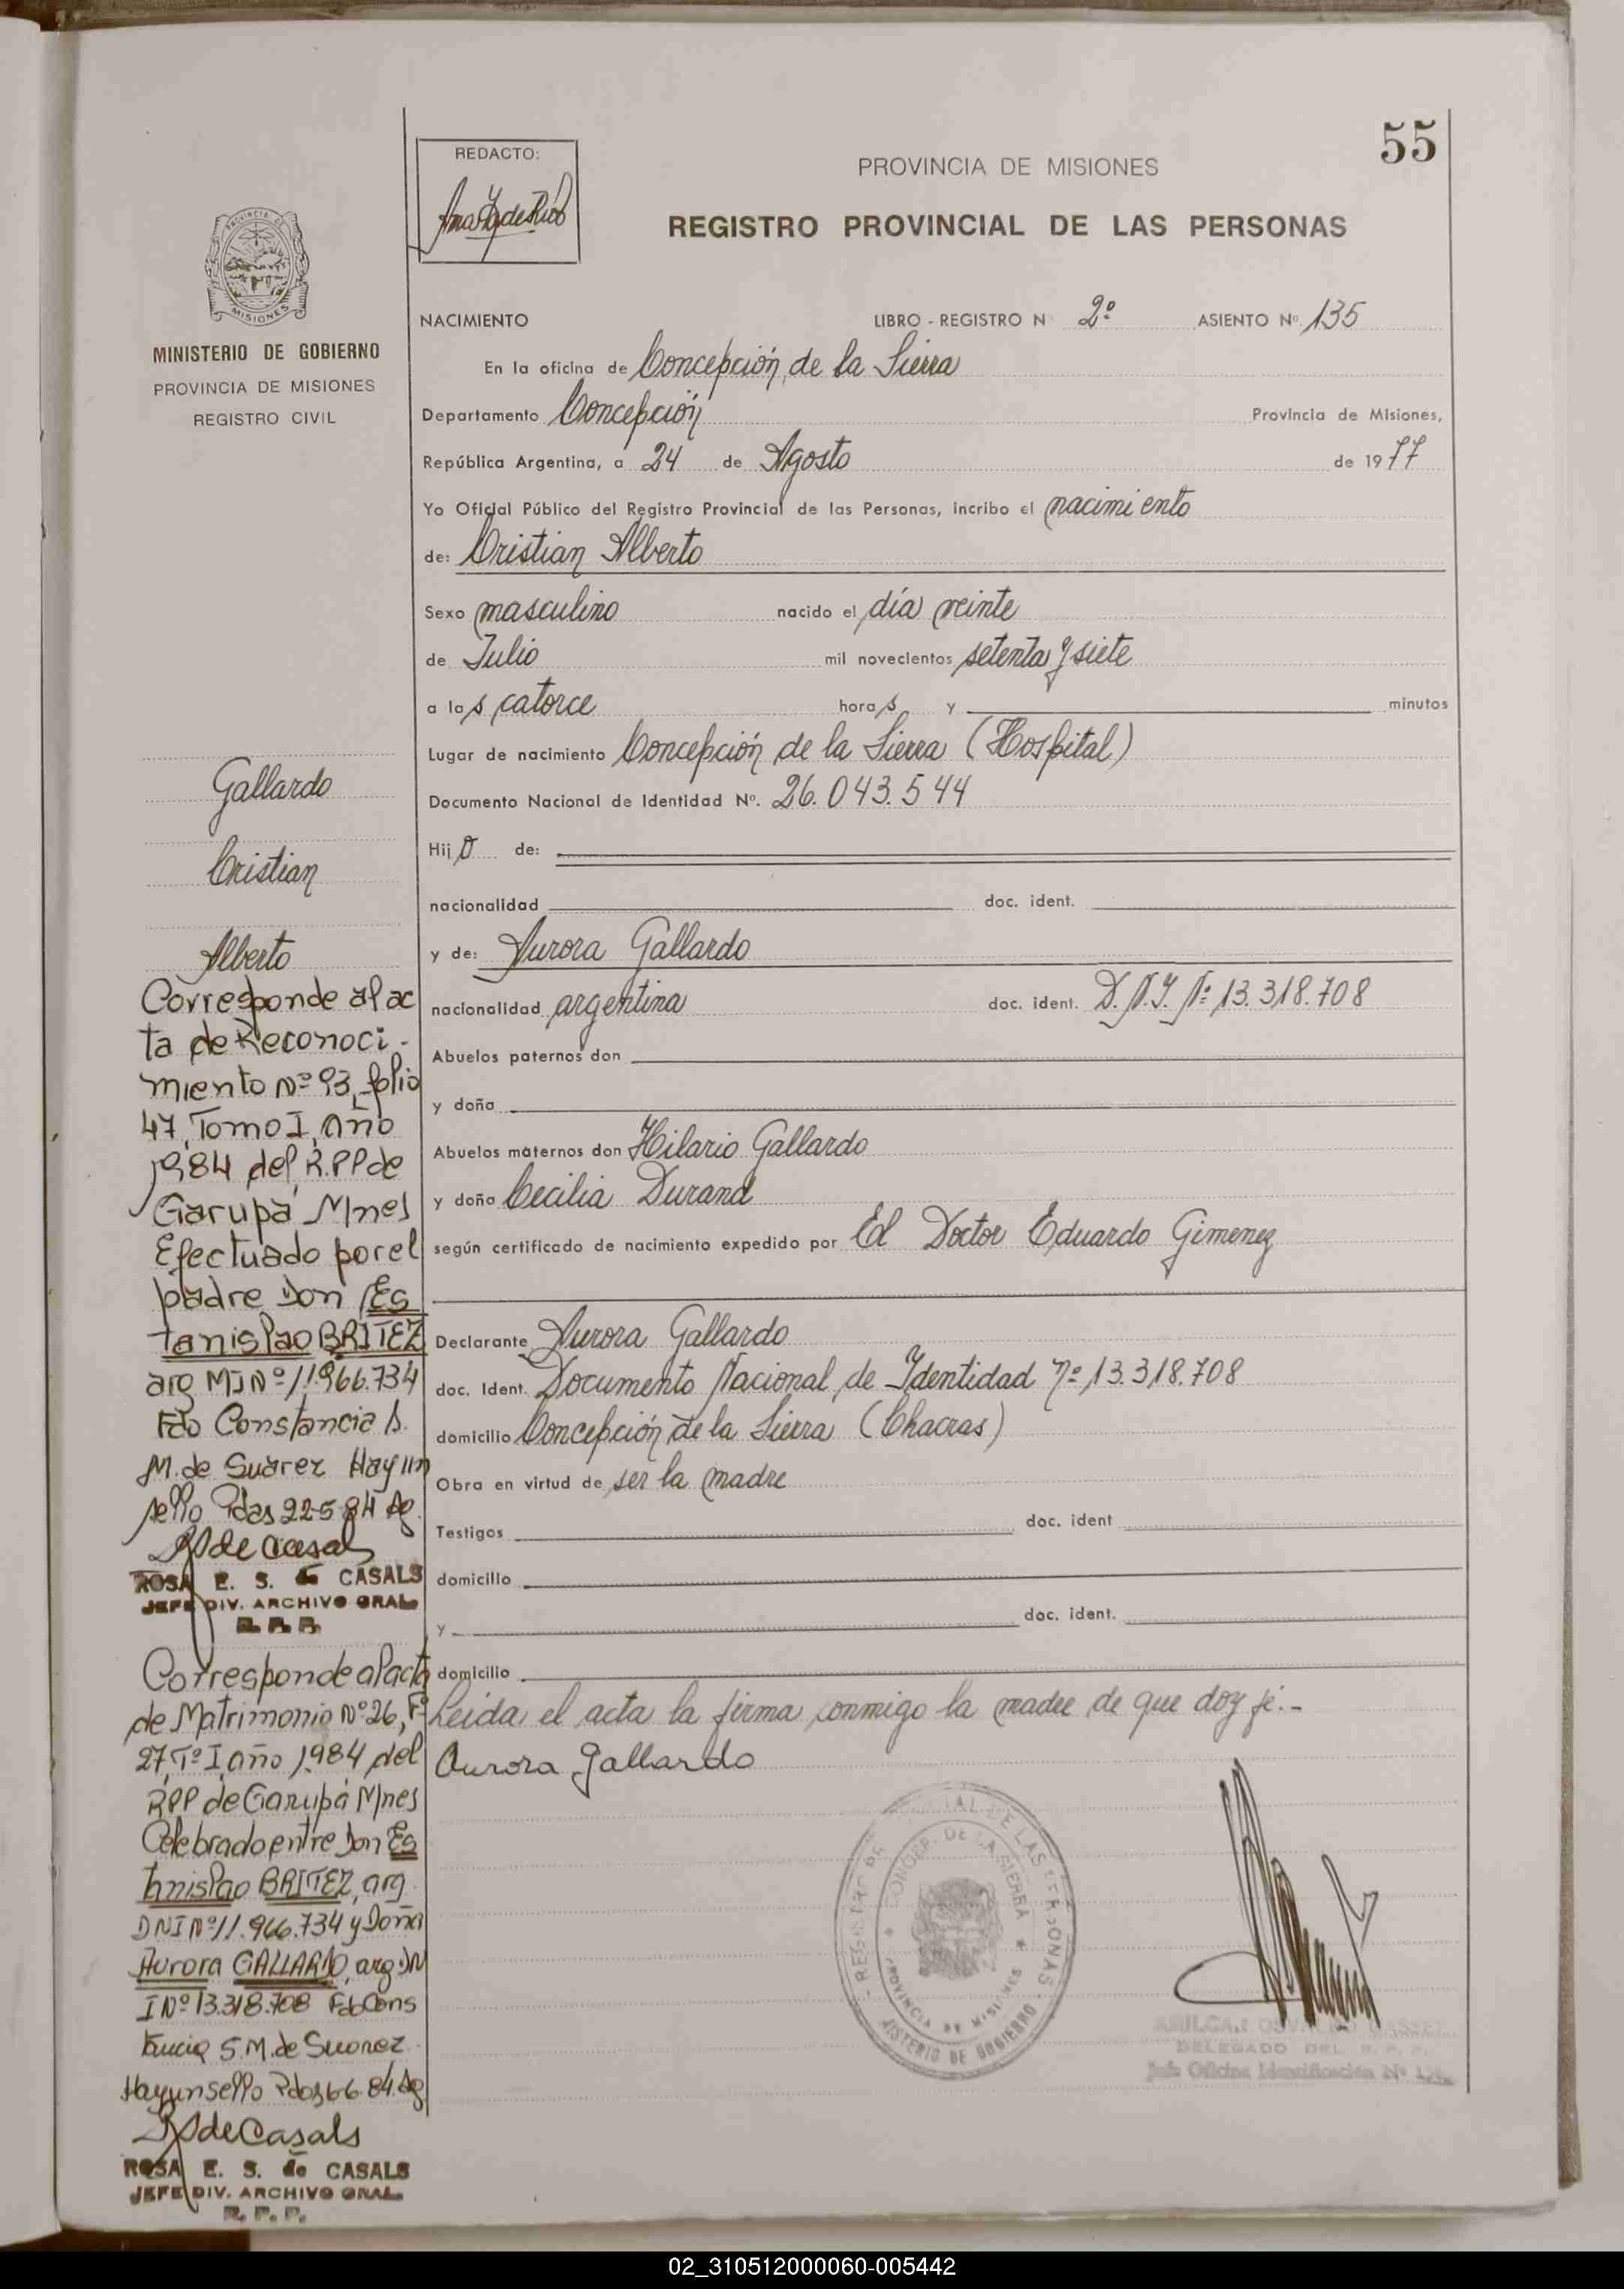 55
REDACTO:
PROVINCIA DE MISIONES
REGISTRO PROVINCIAL DE LAS PERSONAS
MISIONES
MINISTERIO DE GOBIERNO
PROVINCIA DE MISIONES
REGISTRO CIVIL
NACIMIENTO LIBRO - REGISTRO Nº 2º ASIENTO Nº 135
En la oficina de Concepción de la Sierra
Departamento Concepción Provincia de Misiones,
República Argentina, a 24 de Agosto de 1977
Yo Oficial Público del Registro Provincial de las Personas, incribo el nacimiento
de: Cristian Alberto
Sexo masculino nacido el día veinte
de Julio mil novecientos setenta y siete
a las catorce horas y minutos
Lugar de nacimiento Concepción de la Sierra (Hospital)
Documento Nacional de Identidad Nº. 26.043.544
Hijo de:
nacionalidad doc. ident.
y de: Aurora Gallardo
nacionalidad argentina doc. ident. D.N.I. Nº 13.318.708
Abuelos paternos don
y doña
Abuelos maternos don Hilario Gallardo
y doña Cecilia Durand
según certificado de nacimiento expedido por El Doctor Eduardo Gimenez
Declarante Aurora Gallardo
doc. Ident. Documento Nacional de Identidad Nº 13.318.708
domicilio Concepción de la Sierra (Chacras)
Obra en virtud de ser la madre
Testigos doc. ident
domicilio
y doc. ident.
domicilio
Leida el acta la firma conmigo la madre de que doy fé.-
Aurora Gallardo
Gallardo
Cristian
Alberto
Corresponde al ac
ta de Reconoci-
miento Nº 93, folio
47, Tomo I, Año
1984 del R.P.P de
Garupá Mnes
Efectuado por el
padre Don Es
tanislao BRITEZ
arg MI Nº 11.966.734
Fdo Constancia S.
M. de Suárez Hay un
sello Pdas 22-5-84
RS de Casals
ROSA E. S. de CASALS
JEFE DIV. ARCHIVO GRAL.
R. P. P.
Corresponde al acta
de Matrimonio Nº 26, Fº
27, Tº I, año 1984 del
RPP de Garupá Mnes
Celebrado entre Don Es
tanislao BRITEZ, arg
DNI Nº 11.966.734 y Doña
Aurora GALLARDO, arg. DN
I Nº 13.318.708 Fdo Cons
tancia S. M. de Suarez
Hay un sello Pdas 6-6-84
RS de Casals
ROSA E. S. de CASALS
JEFE DIV. ARCHIVO GRAL.
R. P. P.
DE LAS PERSONAS
CONCEP. DE LA SIERRA
PROVINCIA DE MISIONES
MINISTERIO DE GOBIERNO
DELEGADO DEL R. P. P.
Jefe Oficina Identificación Nº
02_310512000060-005442